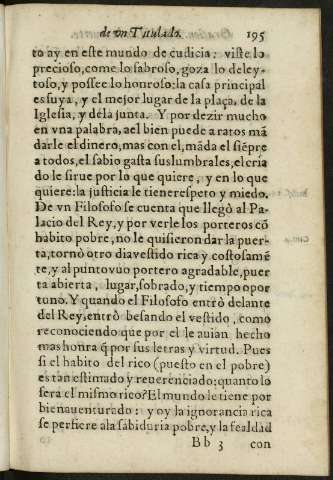 de vn Titulado. 195
to ay en este mundo de cudicia: viste lo
precioso, come lo sabroso, goza lo deley-
toso, y possee lo honroso: la casa principal
es suya, y el mejor lugar de la plaça, de la
Iglesia, y dela junta. Y por dezir mucho
en vna palabra, a el bien puede a ratos mã
darle el dinero, mas con el, mãda el siẽpre
a todos, el sabio gasta sus lumbrales, el cria
do le sirue por lo que quiere, y en lo que
quiere: la justicia le tiene respeto y miedo.
De vn Filosofo se cuenta que llegò al Pa-
lacio del Rey, y por verle los porteros cõ
habito pobre, no le quisieron dar la puer-
ta, tornò otro dia vestido rico y costosamẽ
te, y al punto vuo portero agradable, puer
ta abierta, lugar, sobrado, y tiempo opor
tuno. Y quando el Filosofo entrò delante
del Rey, entrò besando el vestido, como
reconociendo que por el le auian hecho
mas honra q̃ por sus letras y virtud. Pues
si el habito del rico (puesto en el pobre)
es tan estimado y reuerenciado; quanto lo
será el mismo rico? El mundo le tiene por
bienauenturado: y oy la ignorancia rica
se perfiere a la sabiduria pobre, y la fealdad
Bb 3 con